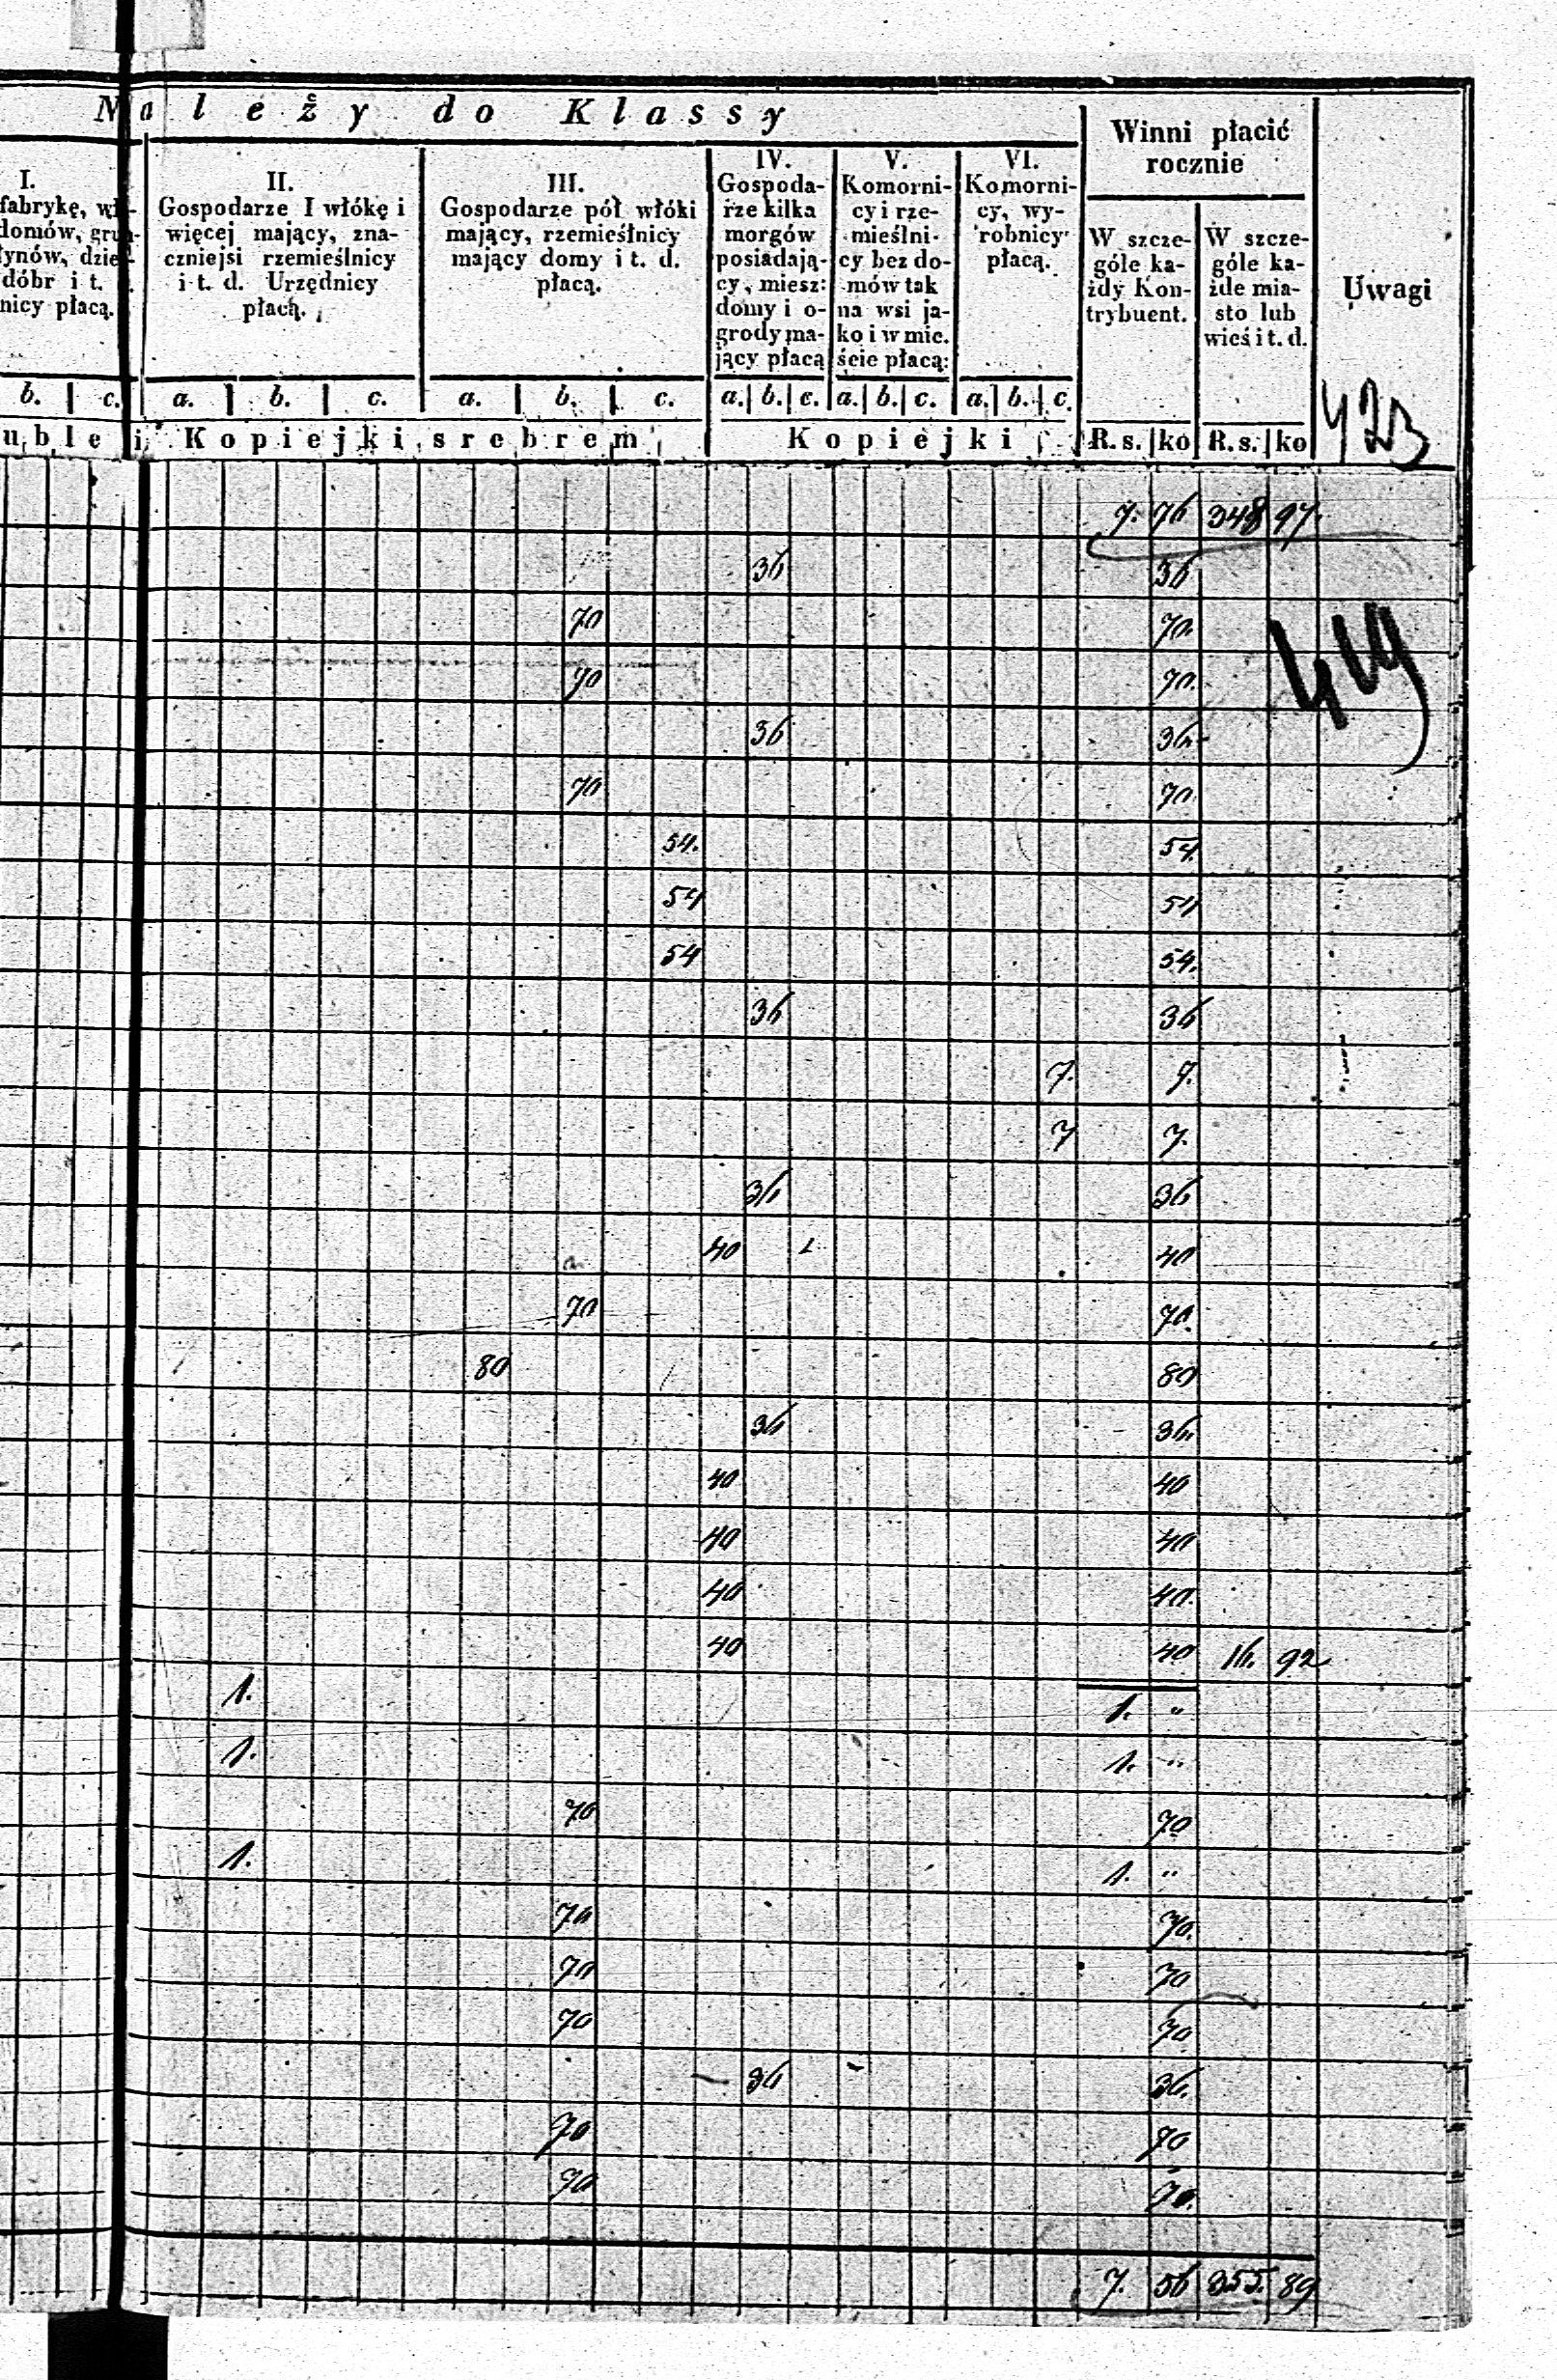 Należy do Klassy
Winni płacić rocznie
I.
fabrykę, wł-
domów, grun-
łynów, dzier-
dóbr i t.
nicy płacą.
II.
Gospodarze I włókę i
więcej mający, zna-
czniejsi rzemieślnicy
i t. d. Urzędnicy
płacą.
III.
Gospodarze pół włóki
mający, rzemieślnicy
mający domy i t. d.
płacą.
IV.
Gospoda-
rze kilka
morgów
posiadają-
cy, miesz:
domy i o-
grody ma-
jący płacą
V.
Komorni-
cy i rze-
mieślni-
cy bez do-
mów tak
na wsi ja-
ko i w mie.
ście płacą:
VI.
Komorni-
cy, wy-
robnicy
płacą.
W szcze-
góle ka-
żdy Kon-
trybuent.
W szcze-
góle ka-
żde mia-
sto lub
wieś i t. d.
Uwagi
b. c. a. b. c. a. b. c. a. b. c. a. b. c. a. b. c.
uble i Kopiejki srebrem Kopiejki R. s. ko R. s. ko
423
7. 76 348 97.
36 36
70 70.
419
70 70.
36 36
70 70.
54. 54.
54 54
54 54.
36 36
7. 7.
7 7.
36 36
40 40
70 70.
80 80
36 36.
40 40
40 40
40 40.
40 40 16. 92
1. 1. "
1. 1. "
70 70
1. 1. "
70 70.
70 70
70 70
36 36.
70 70
70 70.
7. 56 355. 89